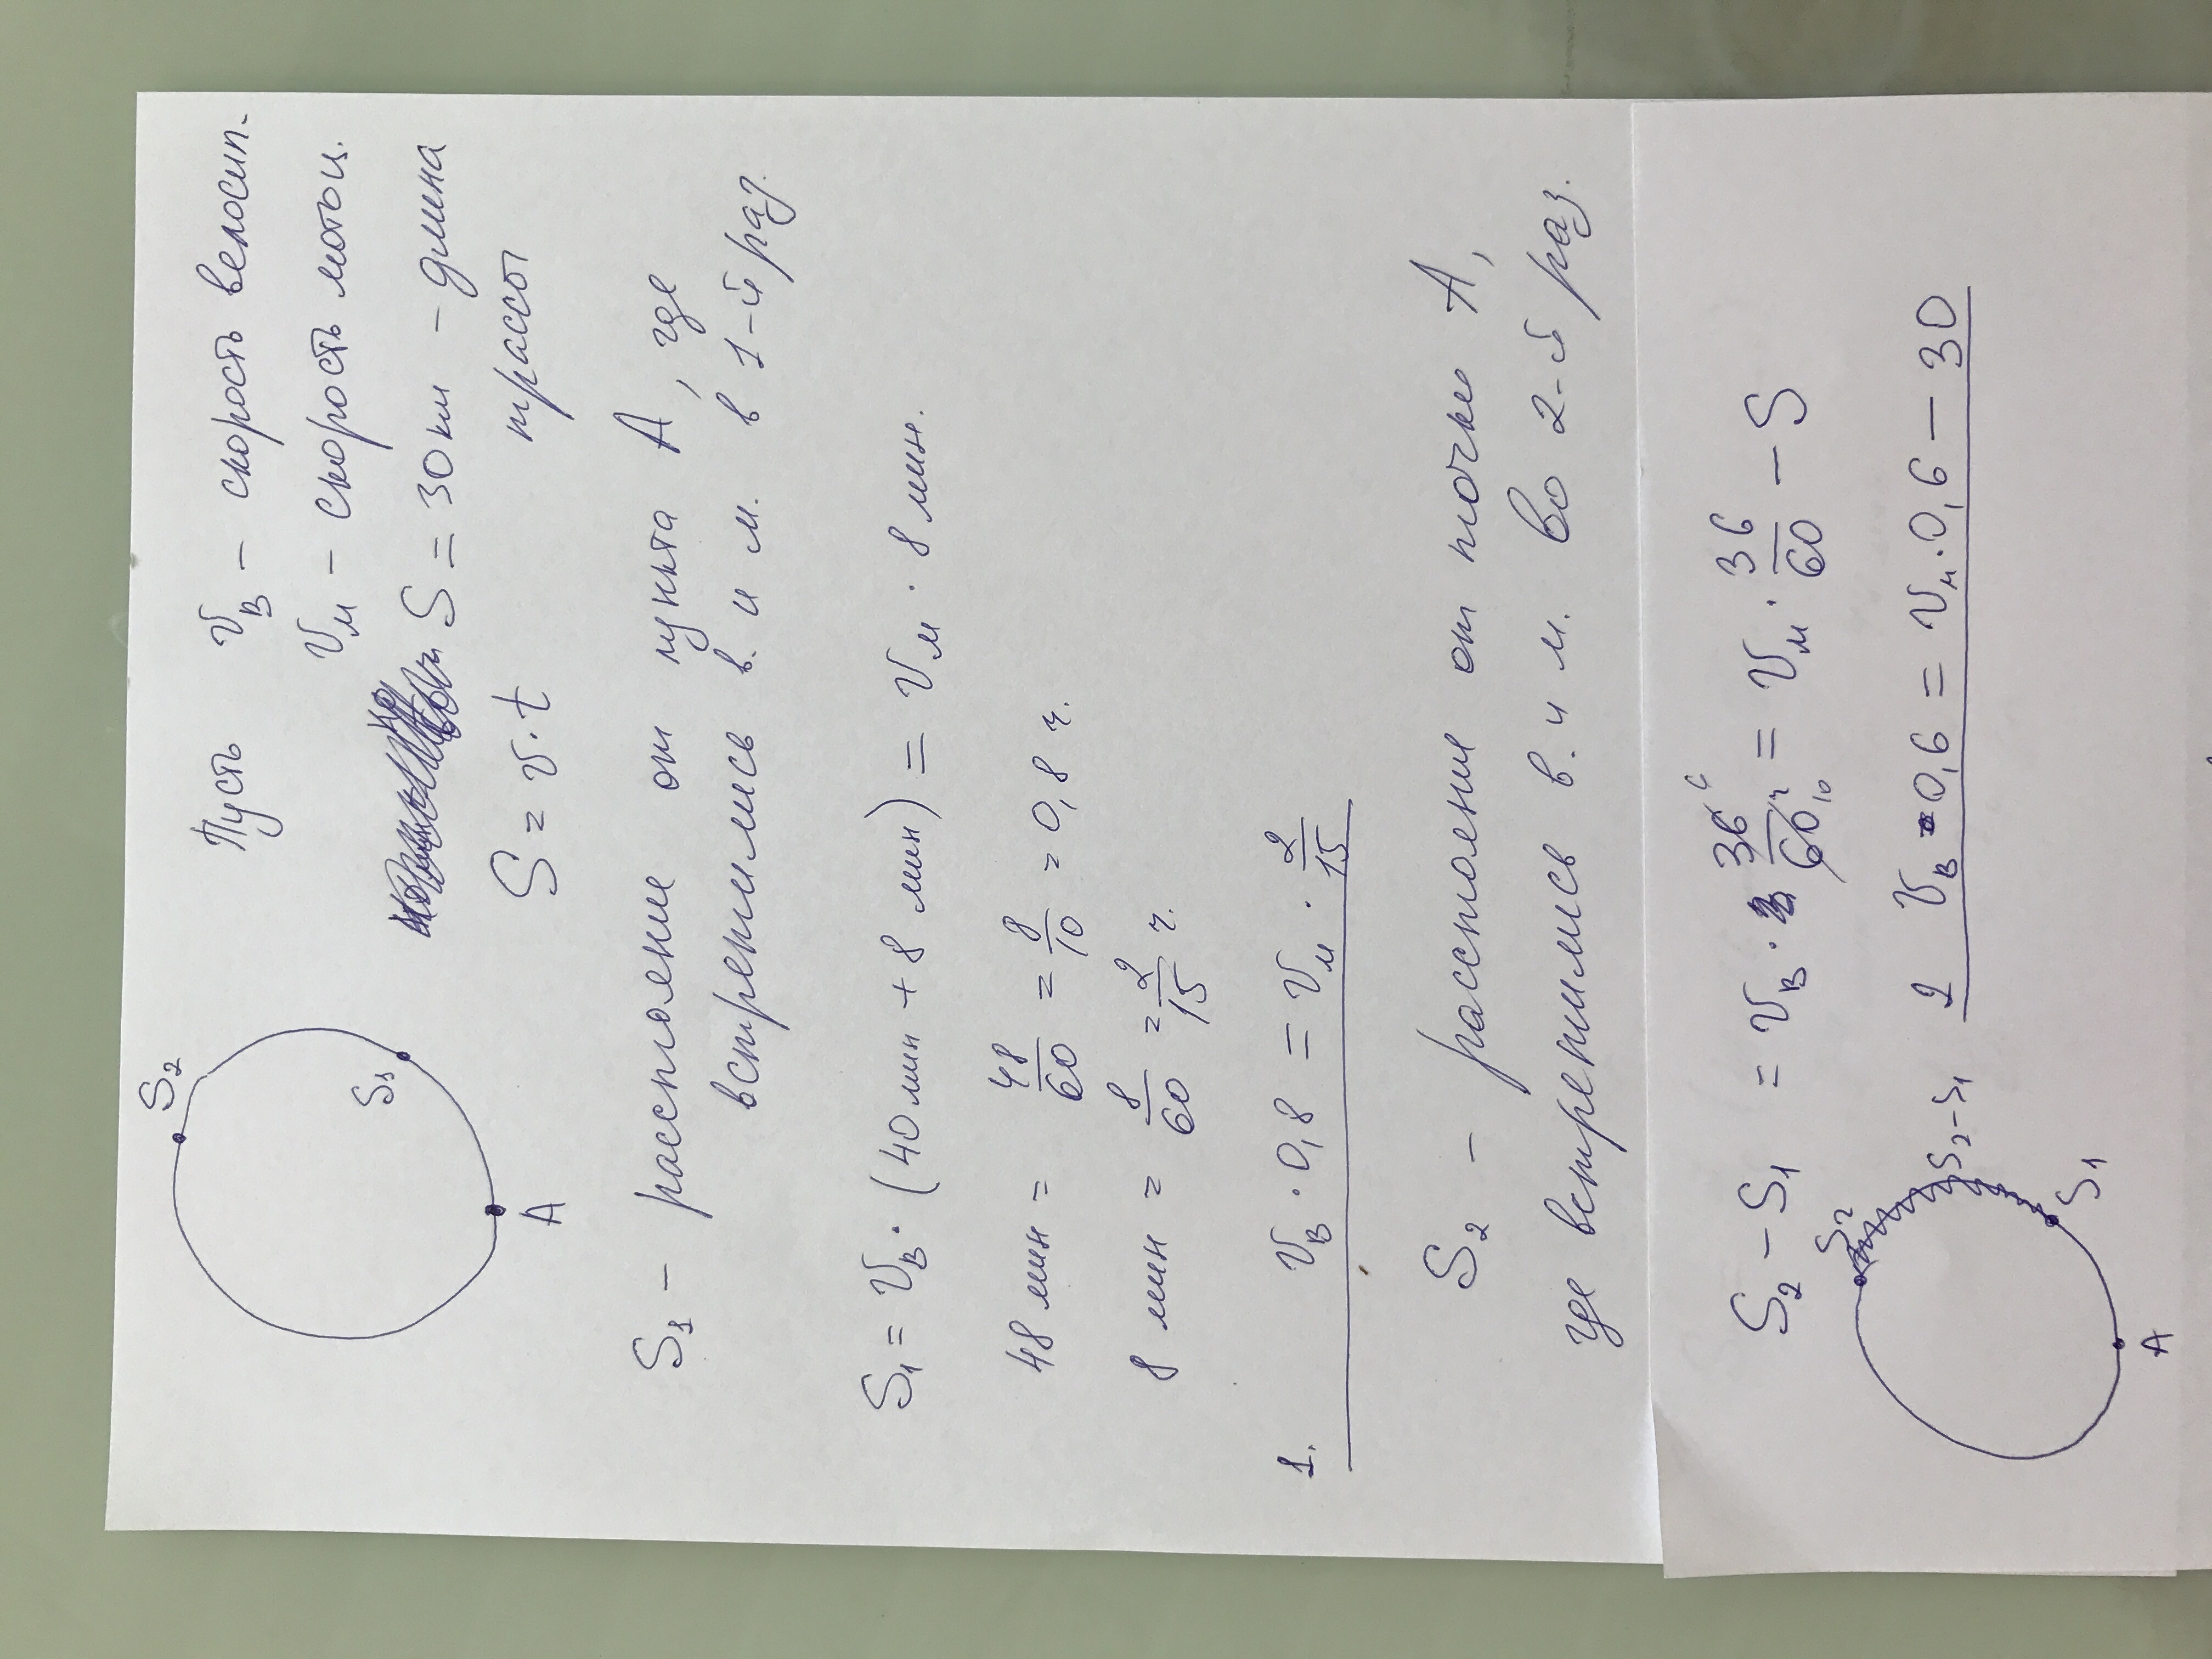 Пусть vв – скорость велосип.
vм – скорость мотоц.
S = 30км – длина
трассы
S = v·t
S2
S1
A
S1 – расстояние от пункта А, где
встретились в. и м. в 1-й раз.
S1 = vв·(40мин + 8 мин) = vм · 8 мин.
48 мин = 48/60 = 8/10 = 0,8 ч.
8 мин = 8/60 = 2/15 ч.
1. vв · 0,8 = vм · 2/15
S2 – расстояние от точки А,
где встретились в. и м. во 2-й раз.
S2 – S1 = vв · 36/60 = vм · 36/60 – S
S2
S2–S1
S1
A
2 vв 0,6 = vм·0,6 – 30